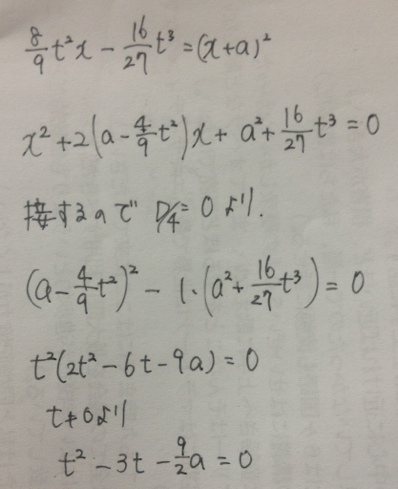 8/9 t²x - 16/27 t³ = (x+a)²
x² + 2(a - 4/9 t²)x + a² + 16/27 t³ = 0
接するので D/4 = 0 より.
(a - 4/9 t²)² - 1·(a² + 16/27 t³) = 0
t²(2t² - 6t - 9a) = 0
t≠0より
t² - 3t - 9/2 a = 0